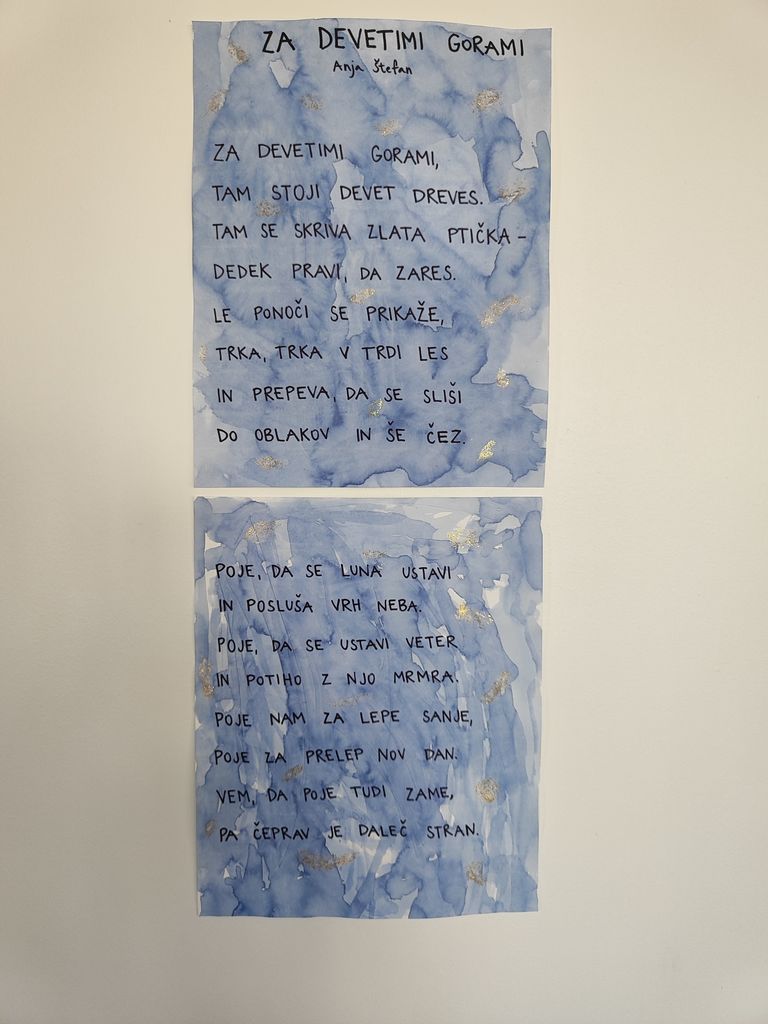 ZA DEVETIMI GORAMI
Anja Štefan
ZA DEVETIMI GORAMI,
TAM STOJI DEVET DREVES.
TAM SE SKRIVA ZLATA PTIČKA –
DEDEK PRAVI, DA ZARES.
LE PONOČI SE PRIKAŽE,
TRKA, TRKA V TRDI LES
IN PREPEVA, DA SE SLIŠI
DO OBLAKOV IN ŠE ČEZ.
POJE, DA SE LUNA USTAVI
IN POSLUŠA VRH NEBA.
POJE, DA SE USTAVI VETER
IN POTIHO Z NJO MRMRA.
POJE NAM ZA LEPE SANJE,
POJE ZA PRELEP NOV DAN.
VEM, DA POJE TUDI ZAME,
PA ČEPRAV JE DALEČ STRAN.